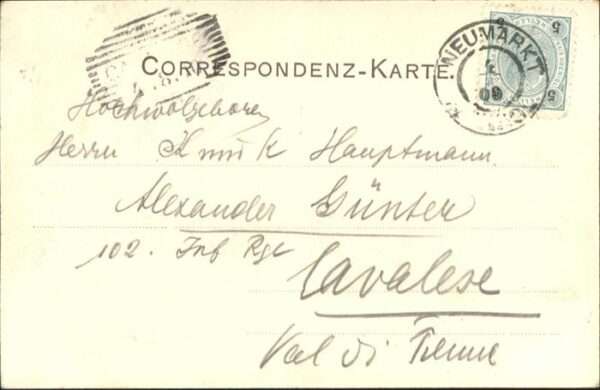 CORRESPONDENZ-KARTE.
NEUMARKT
5 5
09
Hochwolgeboren
Herrn K und K Hauptmann
Alexander Günter
102. Inf Rgt
Cavalese
Val di Fiemme